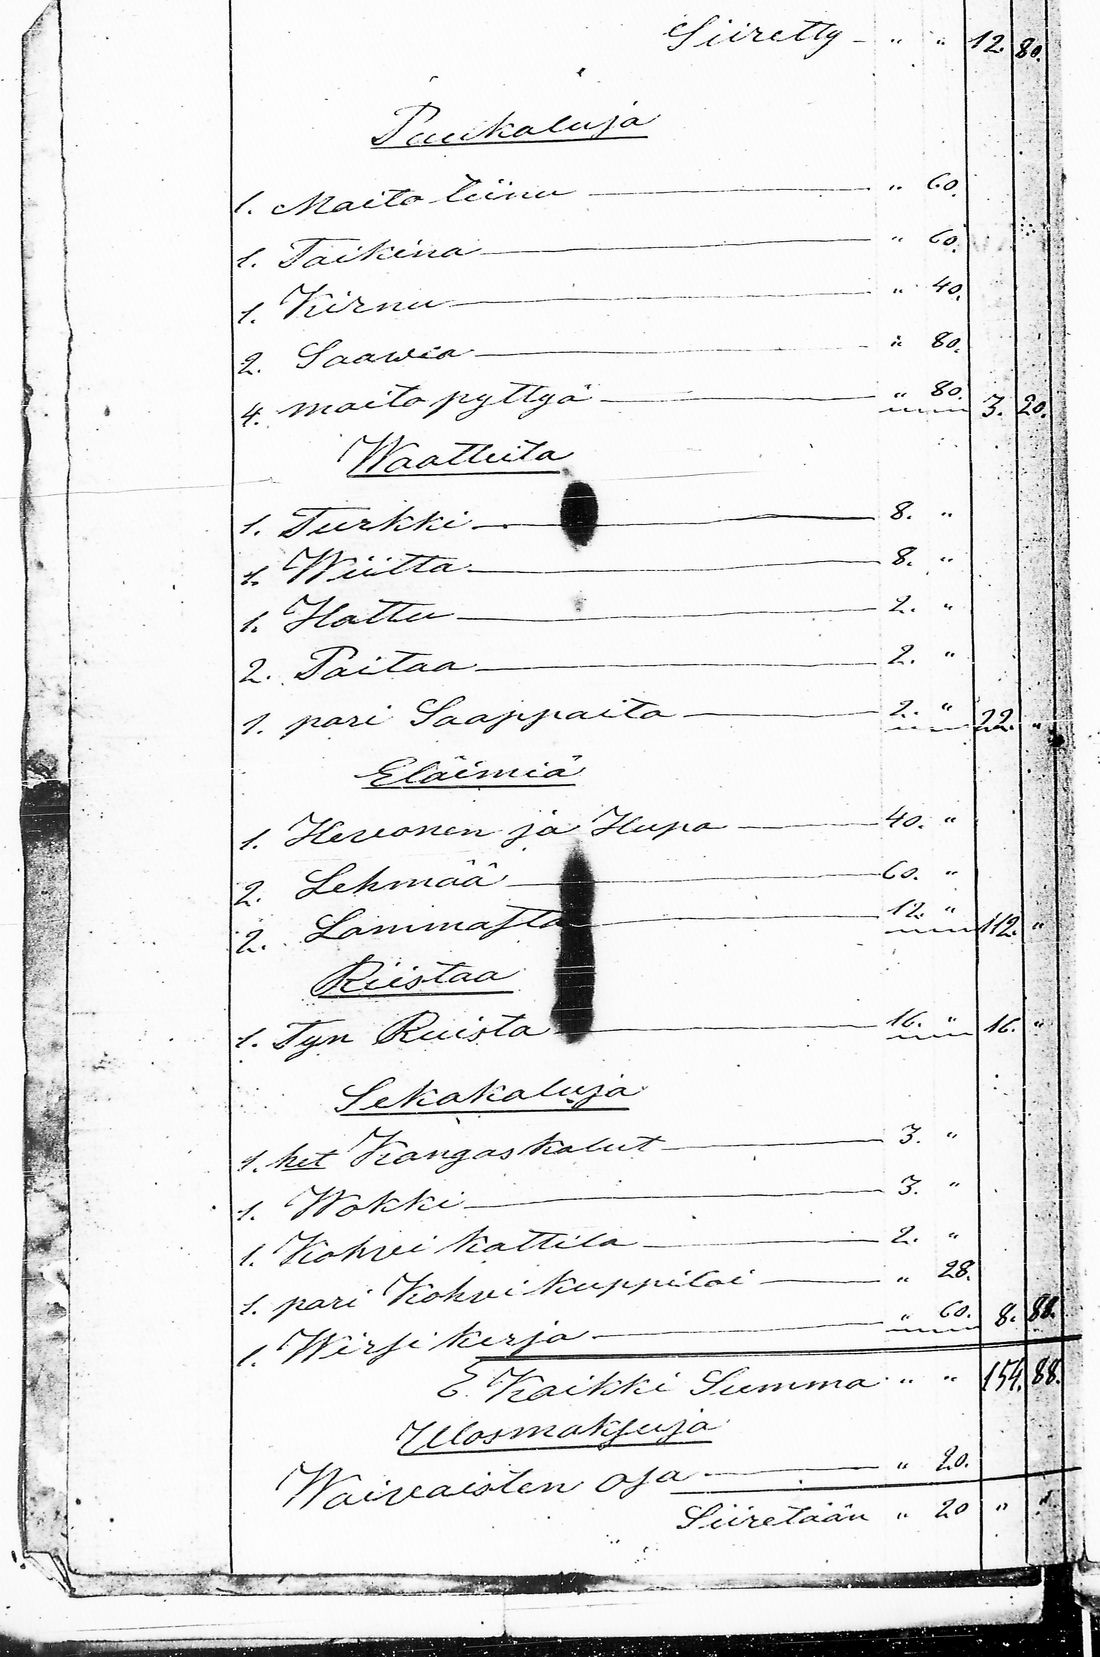 Siiretty - " " 12. 80.
Puukaluja
1. Maito tiinu " 60.
1. Taikina " 60.
1. Kirnu " 40.
2. Saawia " 80.
4. maito pyttyä " 80. 3. 20.
Waatteita
1. Turkki 8. "
1. Wiitta 8. "
1. Hattu 2. "
2. Paitaa 2. "
1. pari Saappaita 2. " 22. "
Eläimiä
1. Hevonen ja Hupa 40. "
2. Lehmää 60. "
2. Lammasta 12. " 112. "
Riistaa
1. Tyn Ruista 16. " 16. "
Sekakaluja
1. het Kangaskalut 3. "
1. Wokki 3. "
1. Kohvi kattila 2. "
1. pari Kohvi kuppiloi " 28.
1. Wirsi kirja " 60. 8. 88.
Kaikki Summa " " 154. 88.
Ulosmaksuja
Waivaisten osa " 20.
Siiretään " 20 " "